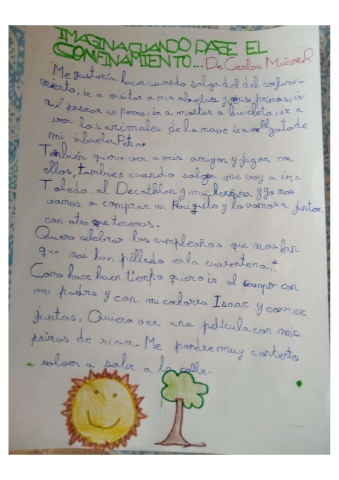 IMAGINA CUANDO PASE EL
CONFINAMIENTO... De Carlos Muñoz R
Me gustaría hacer cuando salga del del confina-
miento, ir a visitar a mis abuelos y mis primos, ir
a pasear un perro, ir a montar a bicicleta, ir a
ver los animales de la nave gato de
mi abuela Petra.
También quiero ver a mis amigos y jugar con
ellos, tambien cuando salga me voy a ir a
Toledo al Decathlon y mi hermana y yo nos
vamos a comprar un y lo vamos a juntar
con otro que tenemos.
Quiero celebrar los cumpleaños que nos han
que nos han pillado en la cuarentena.
Como hace buen tiempo quiero ir al campo con
mi padre y con mi Isaac y correr
juntos. Quiero ver una película con mis
primos de risa. Me pondre muy contento
volver a salir a la calle.